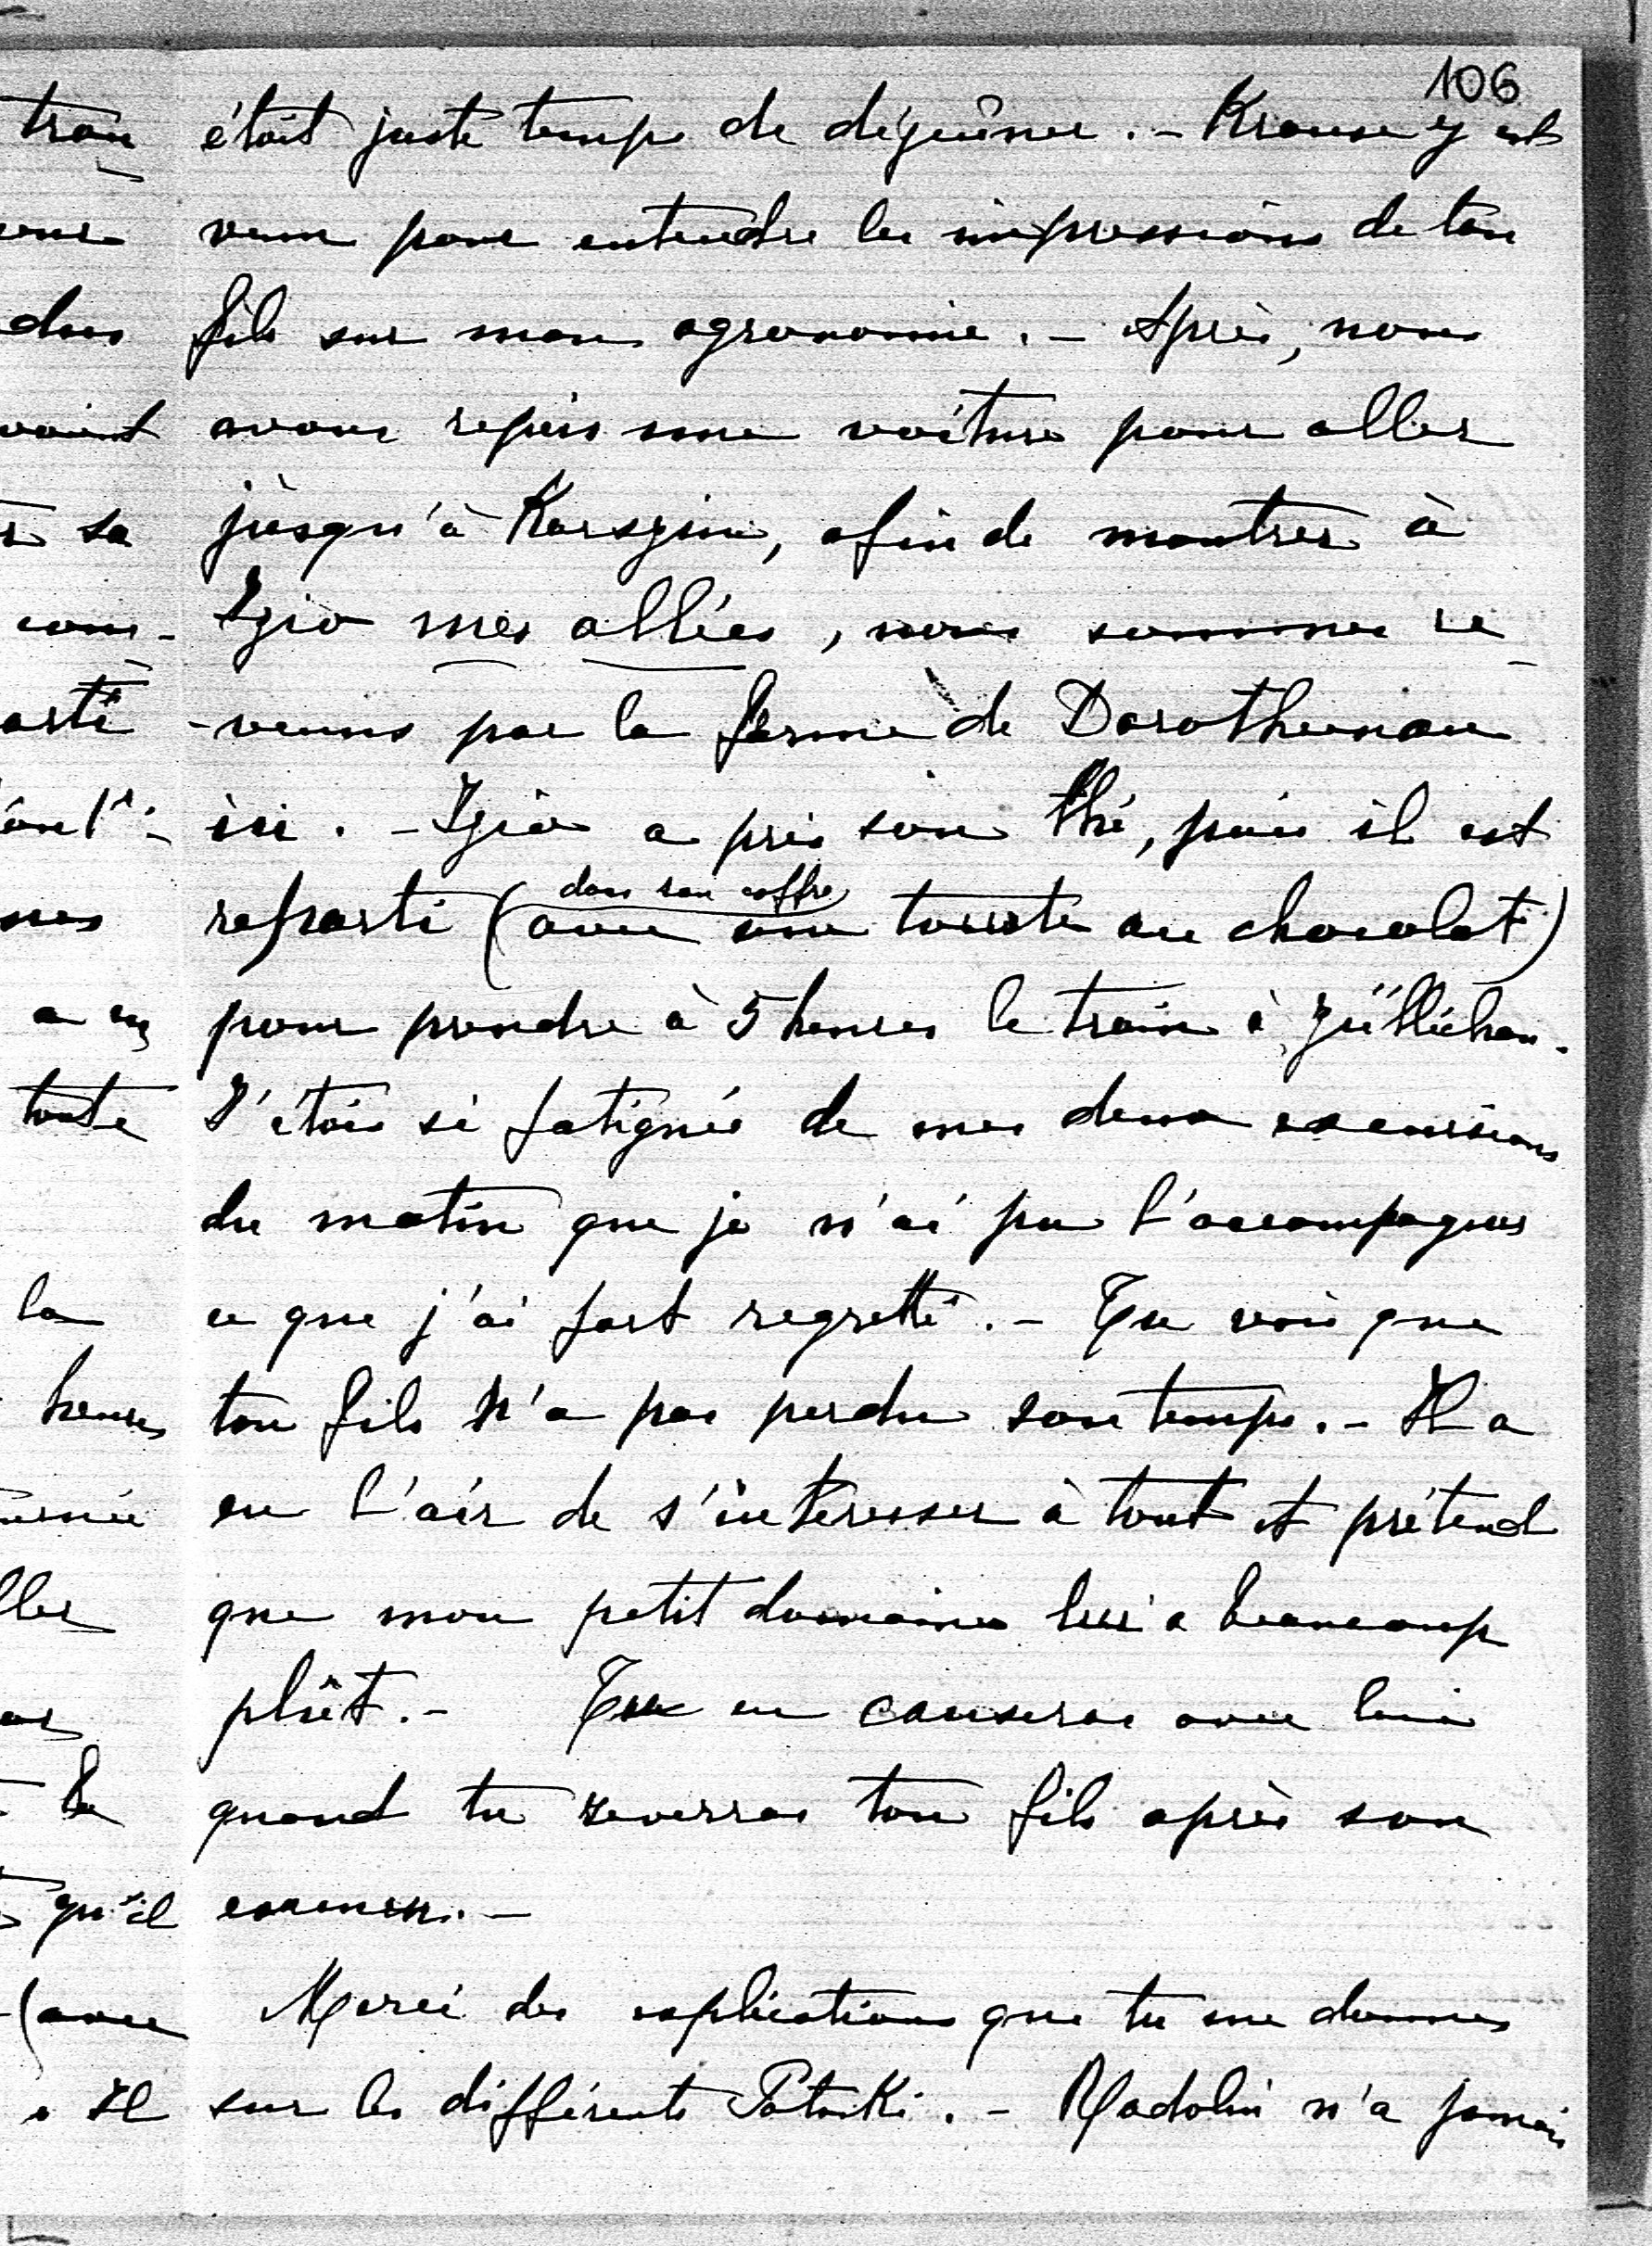 106
était juste temps de déjeûner. - Krause y est
venu pour entendre les impressions de ton
fils sur mon agronomie. - Après, nous
avons repris une voiture pour aller
jusqu'à Karszine, afin de montrer à
Izio mes allées, nous sommes re-
-venus par la ferme de Dorotheenau
ici. - Izio a pris son thé, puis il est
dans son coffre
reparti (avec une tourte au chocolat)
pour prendre à 5 heures le train à Züllichau.
J'étais si fatiguée de mes deux excursions
du matin que je n'ai pu l'accompagner
ce que j'ai fort regretté. - Tu vois que
ton fils n'a pas perdu son temps. - Il a
eu l'air de s'intéresser à tout et prétend
que mon petit domaine lui a beaucoup
plût. - Tu en causeras avec lui
quand tu reverras ton fils après son
examen. -
Merci des explications que tu me donnes
sur les différents Potocki. - Radolin n'a jamais